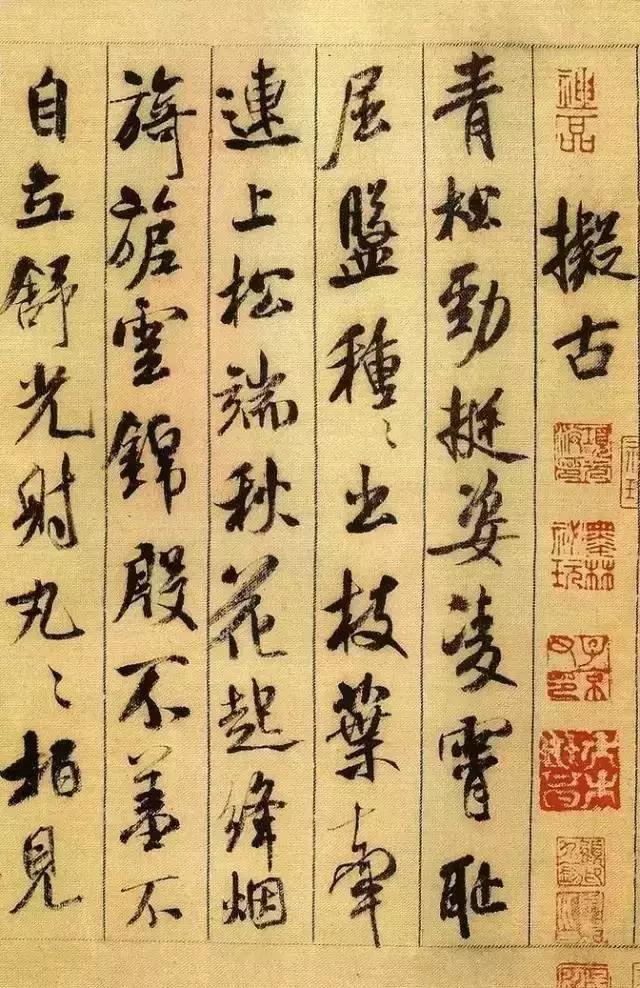 神品
擬古
墨林祕玩
青松勁挺姿凌霄恥
屈盤種〻出枝葉牽
連上松端秋花起絳烟
旖旎雲錦殷不羞不
自立舒光射丸〻柏見